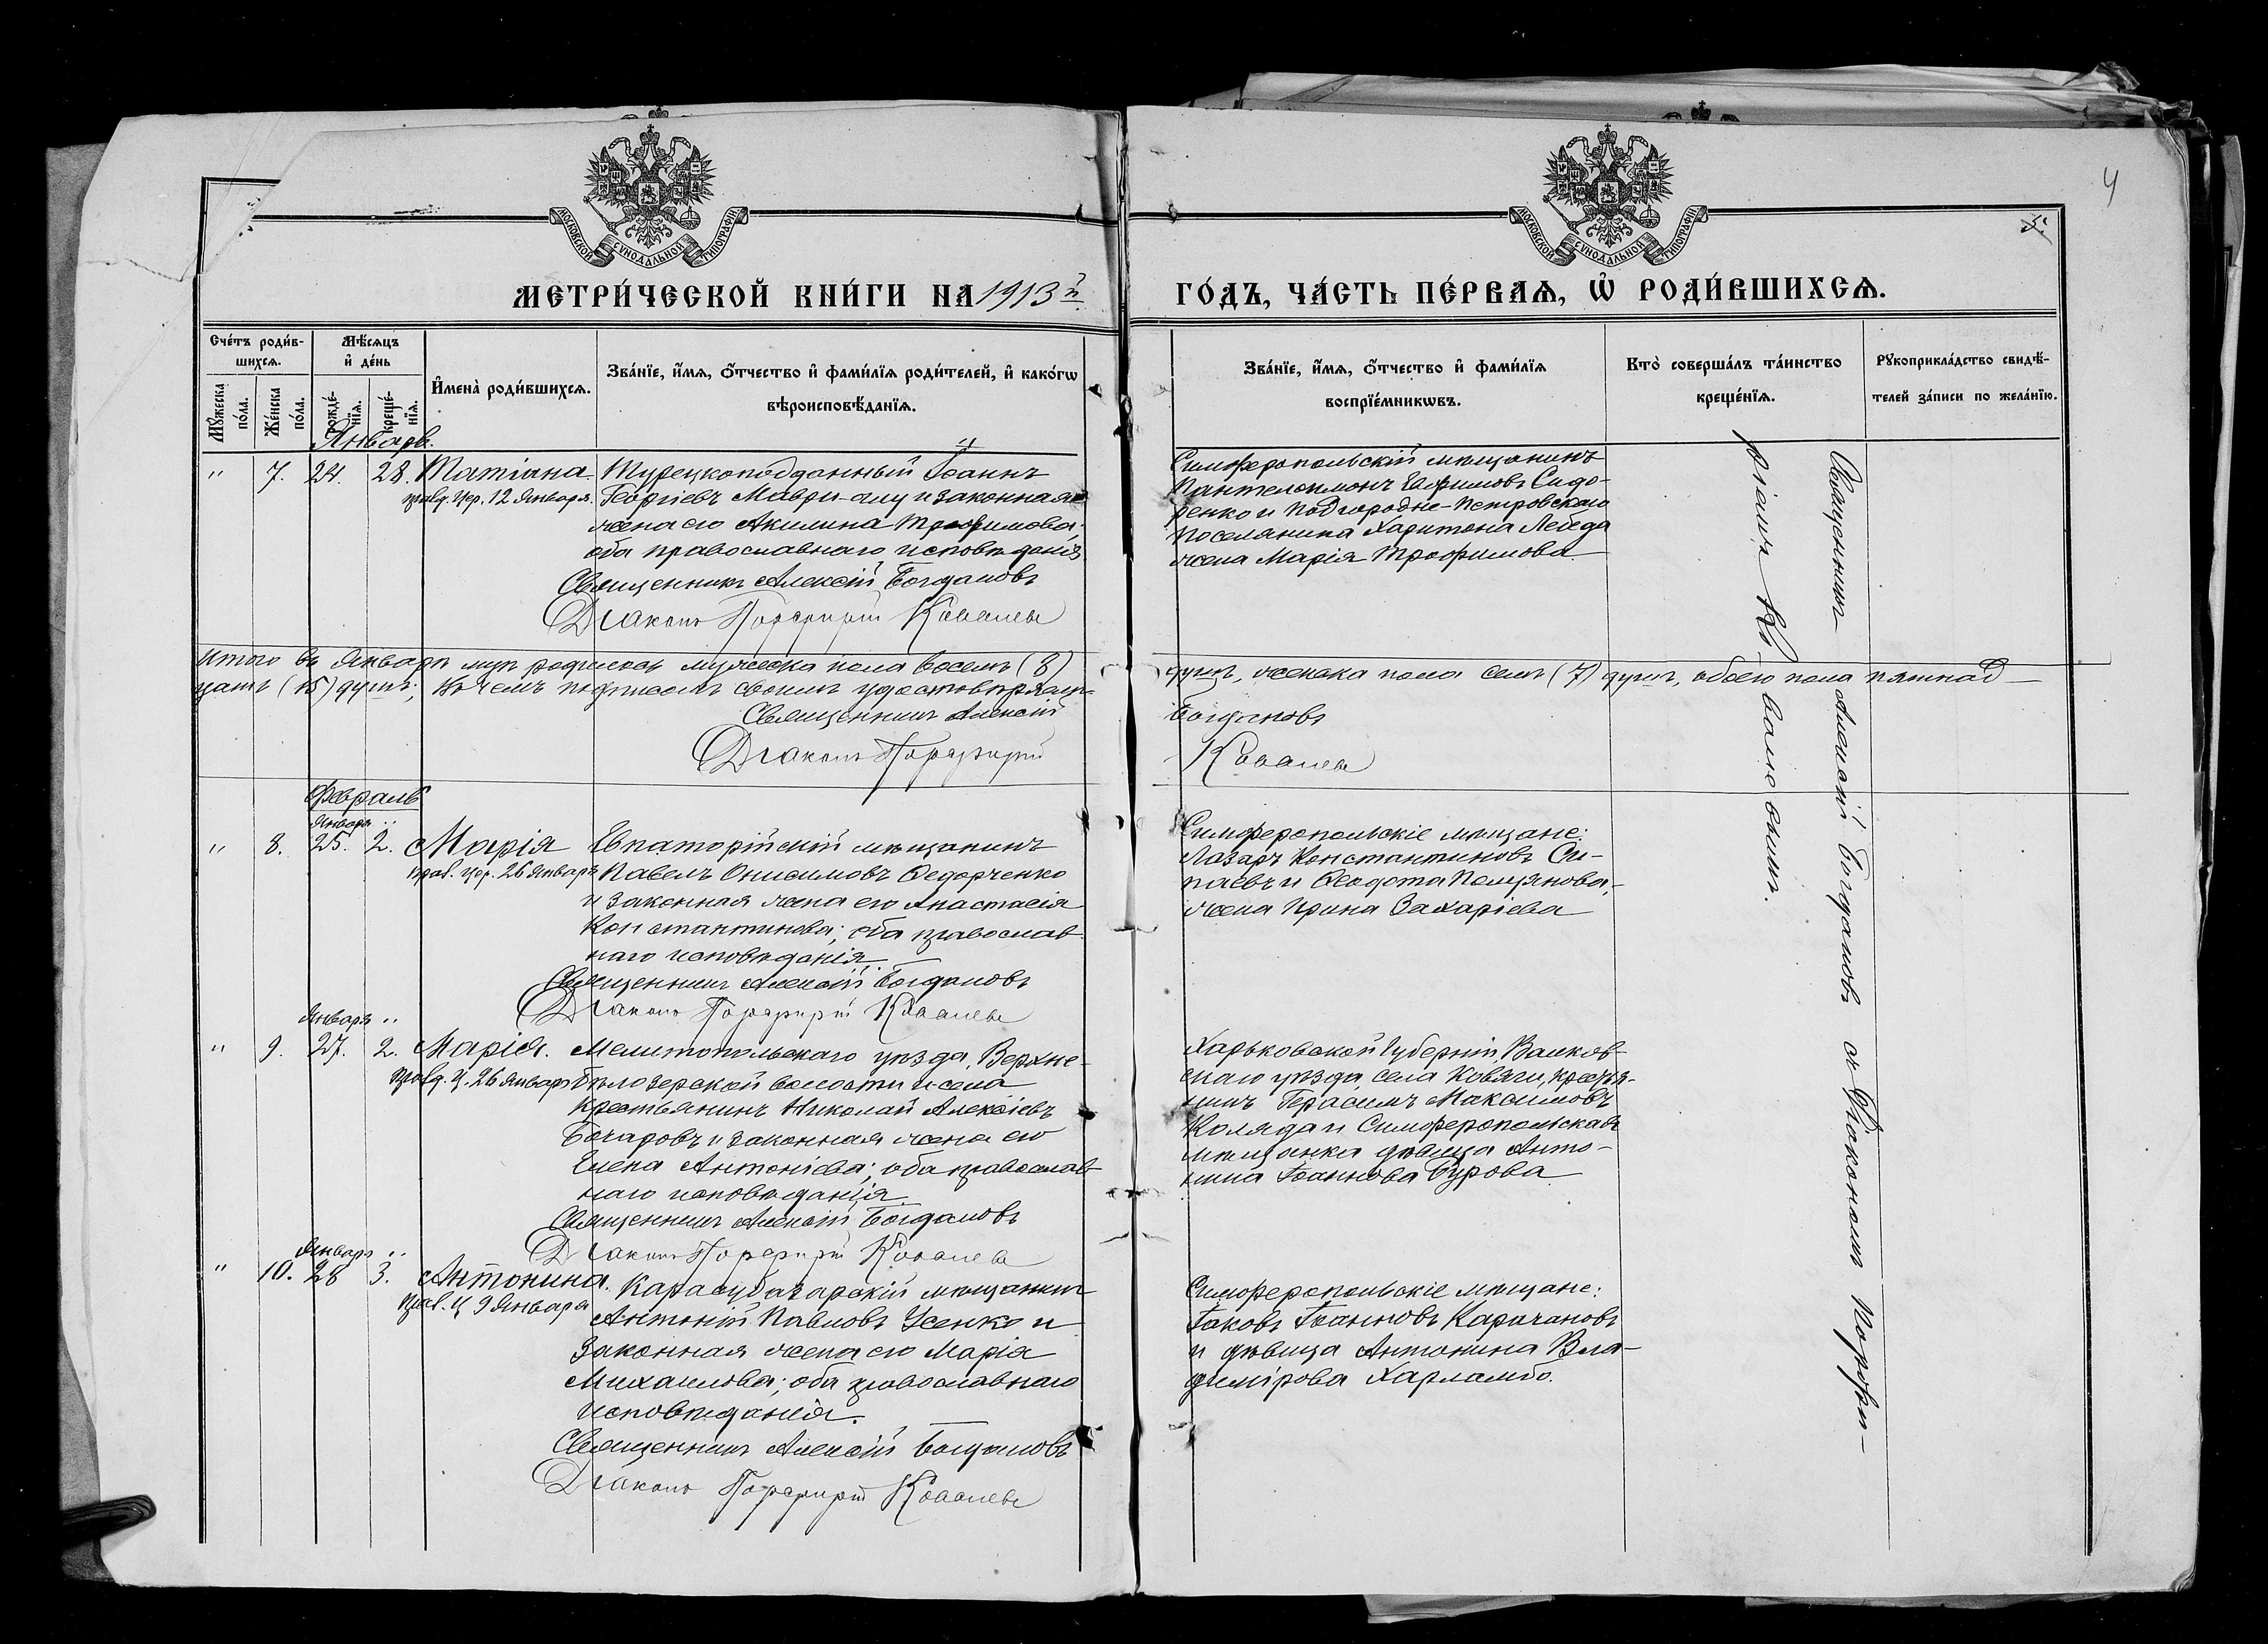 4
5.
МОСКОВСКОЙ СѴНОДАЛЬНОЙ ТИПОГРАФІИ.
МОСКОВСКОЙ СѴНОДАЛЬНОЙ ТИПОГРАФІИ.
МЕТРИ́ЧЕСКОЙ КНИ́ГИ НА 1913 й
ГО́ДЪ, ЧА́СТЬ ПЕ́РВАѦ, Ѡ҆ РОДИ́ВШИХСѦ.
Сче́тъ роди́в-
шихсѧ.
Мꙋ́жеска по́ла.
Же́нска по́ла.
Мѣ́сѧцъ
и҆ де́нь
рожде́-
нїѧ.
креще́-
нїѧ.
И҆мена̀ роди́вшихсѧ.
Зва́нїе, и҆́мѧ, ѻ҆́тчество и҆ фами́лїѧ роди́телей, и҆ како́гѡ
вѣроисповѣ́данїѧ.
Зва́нїе, и҆́мѧ, ѻ҆́тчество и҆ фами́лїѧ
воспрїе́мникѡвъ.
Кто̀ соверша́лъ та́инство
креще́нїѧ.
Рꙋкоприкла́дство свидѣ́-
телей за́писи по жела́нїю.
Январь.
" 7. 24. 28. Татіана
празд. цер. 12 Января.
Турецкоподданный Іоаннъ
Георгіевъ Маври-оглу и законная
жена его Акилина Трофимова;
оба православнаго исповѣданія
Священникъ Алексій Богдановъ
Діаконъ Порфирій Ковалевъ
Симферопольскій мѣщанинъ
Пантелеимонъ Евфимовъ Сидо-
ренко и Подгородне-Петровскаго
поселянина Харитона Лебеда
жена Марія Трофимова
Итого въ Январѣ мцѣ родилось мужеска пола восемь (8) душъ, женска пола семь (7) душъ, обоего пола пятнад-
цать (15) душъ; въ чемъ подписомъ своимъ удостовѣряемъ
Священникъ Алексій Богдановъ
Діаконъ Порфирій Ковалевъ
Февраль
Января
" 8. 25. 2. Марія
празд. цер. 26 Января
Евпаторійскій мѣщанинъ
Павелъ Онисимовъ Федорченко
и законная жена его Анастасія
Константинова; оба православ-
наго исповѣданія.
Священникъ Алексій Богдановъ
Діаконъ Порфирій Ковалевъ
Симферопольскіе мѣщане:
Лазарь Константиновъ
и Феодота
жена Ирина Захаріева
Января
" 9. 27. 2. Марія.
празд. ц. 26 Января
Мелитопольскаго уѣзда, Верхне-
Бѣлозерской волости и села
крестьянинъ Николай Алексіевъ
Бочаровъ и законная жена его
Елена Антоніева; оба православ-
наго исповѣданія
Священникъ Алексій Богдановъ
Діаконъ Порфирій Ковалевъ
Харьковской губерніи, Валков-
скаго уѣзда, села Ковяги, крестья-
нинъ Герасимъ Максимовъ
Коляда и Симферопольская
мѣщанка дѣвица Анто-
нина Іоаннова Бурова
Января
" 10. 28 3. Антонина.
празд. ц 9 Января
Карасубазарскій мѣщанинъ
Антоній Павловъ Усенко и
законная жена его Марія
Михаилова; оба православнаго
исповѣданія.
Священникъ Алексій Богдановъ
Діаконъ Порфирій Ковалевъ
Симферопольскіе мѣщане:
Іаковъ Іоанновъ Карачановъ
и дѣвица Антонина Вла-
димірова Харламбо.
Священникъ Алексій Богдановъ съ Діакономъ Порфи-
ріемъ Ковалевымъ.